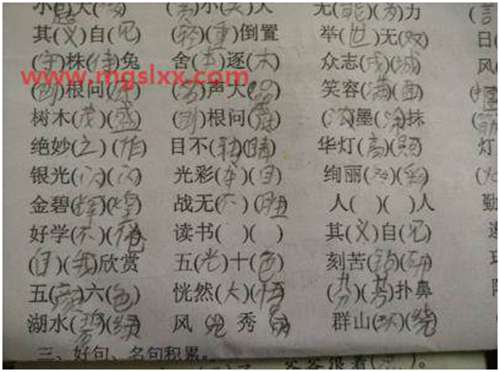 小(题)大( ) 小( )大( )人 无(能)(为)力
其(义)自(见) (轻)(重)倒置 举(世)无(双)
守株(待)兔 舍(本)逐(末) 众志(成)(城) 日
www.mgslxx.com
(刨)根问(底) 声大 笑容(满)(面) 风
树木(茂)(盛) (刨)根问(底) (浓)墨( )抹
绝妙(之)(作) 目不(转)(睛) 华灯(高)(照) 灯
银光(闪)(闪) 光彩(夺)(目) 绚丽(多)(彩)
金碧(辉)(煌) 战无(不)(胜) 人( )( )人 勤
好学(不)(倦) 读书( )( ) 其(义)自(见)
(自)(我)欣赏 五(光)十(色) 刻苦(钻)(研)
五(颜)六(色) 恍然(大)(悟) (芬)(芳)扑鼻
湖水(碧)(绿) 风 秀 群山(环)(绕)
三、好句、名句积累。